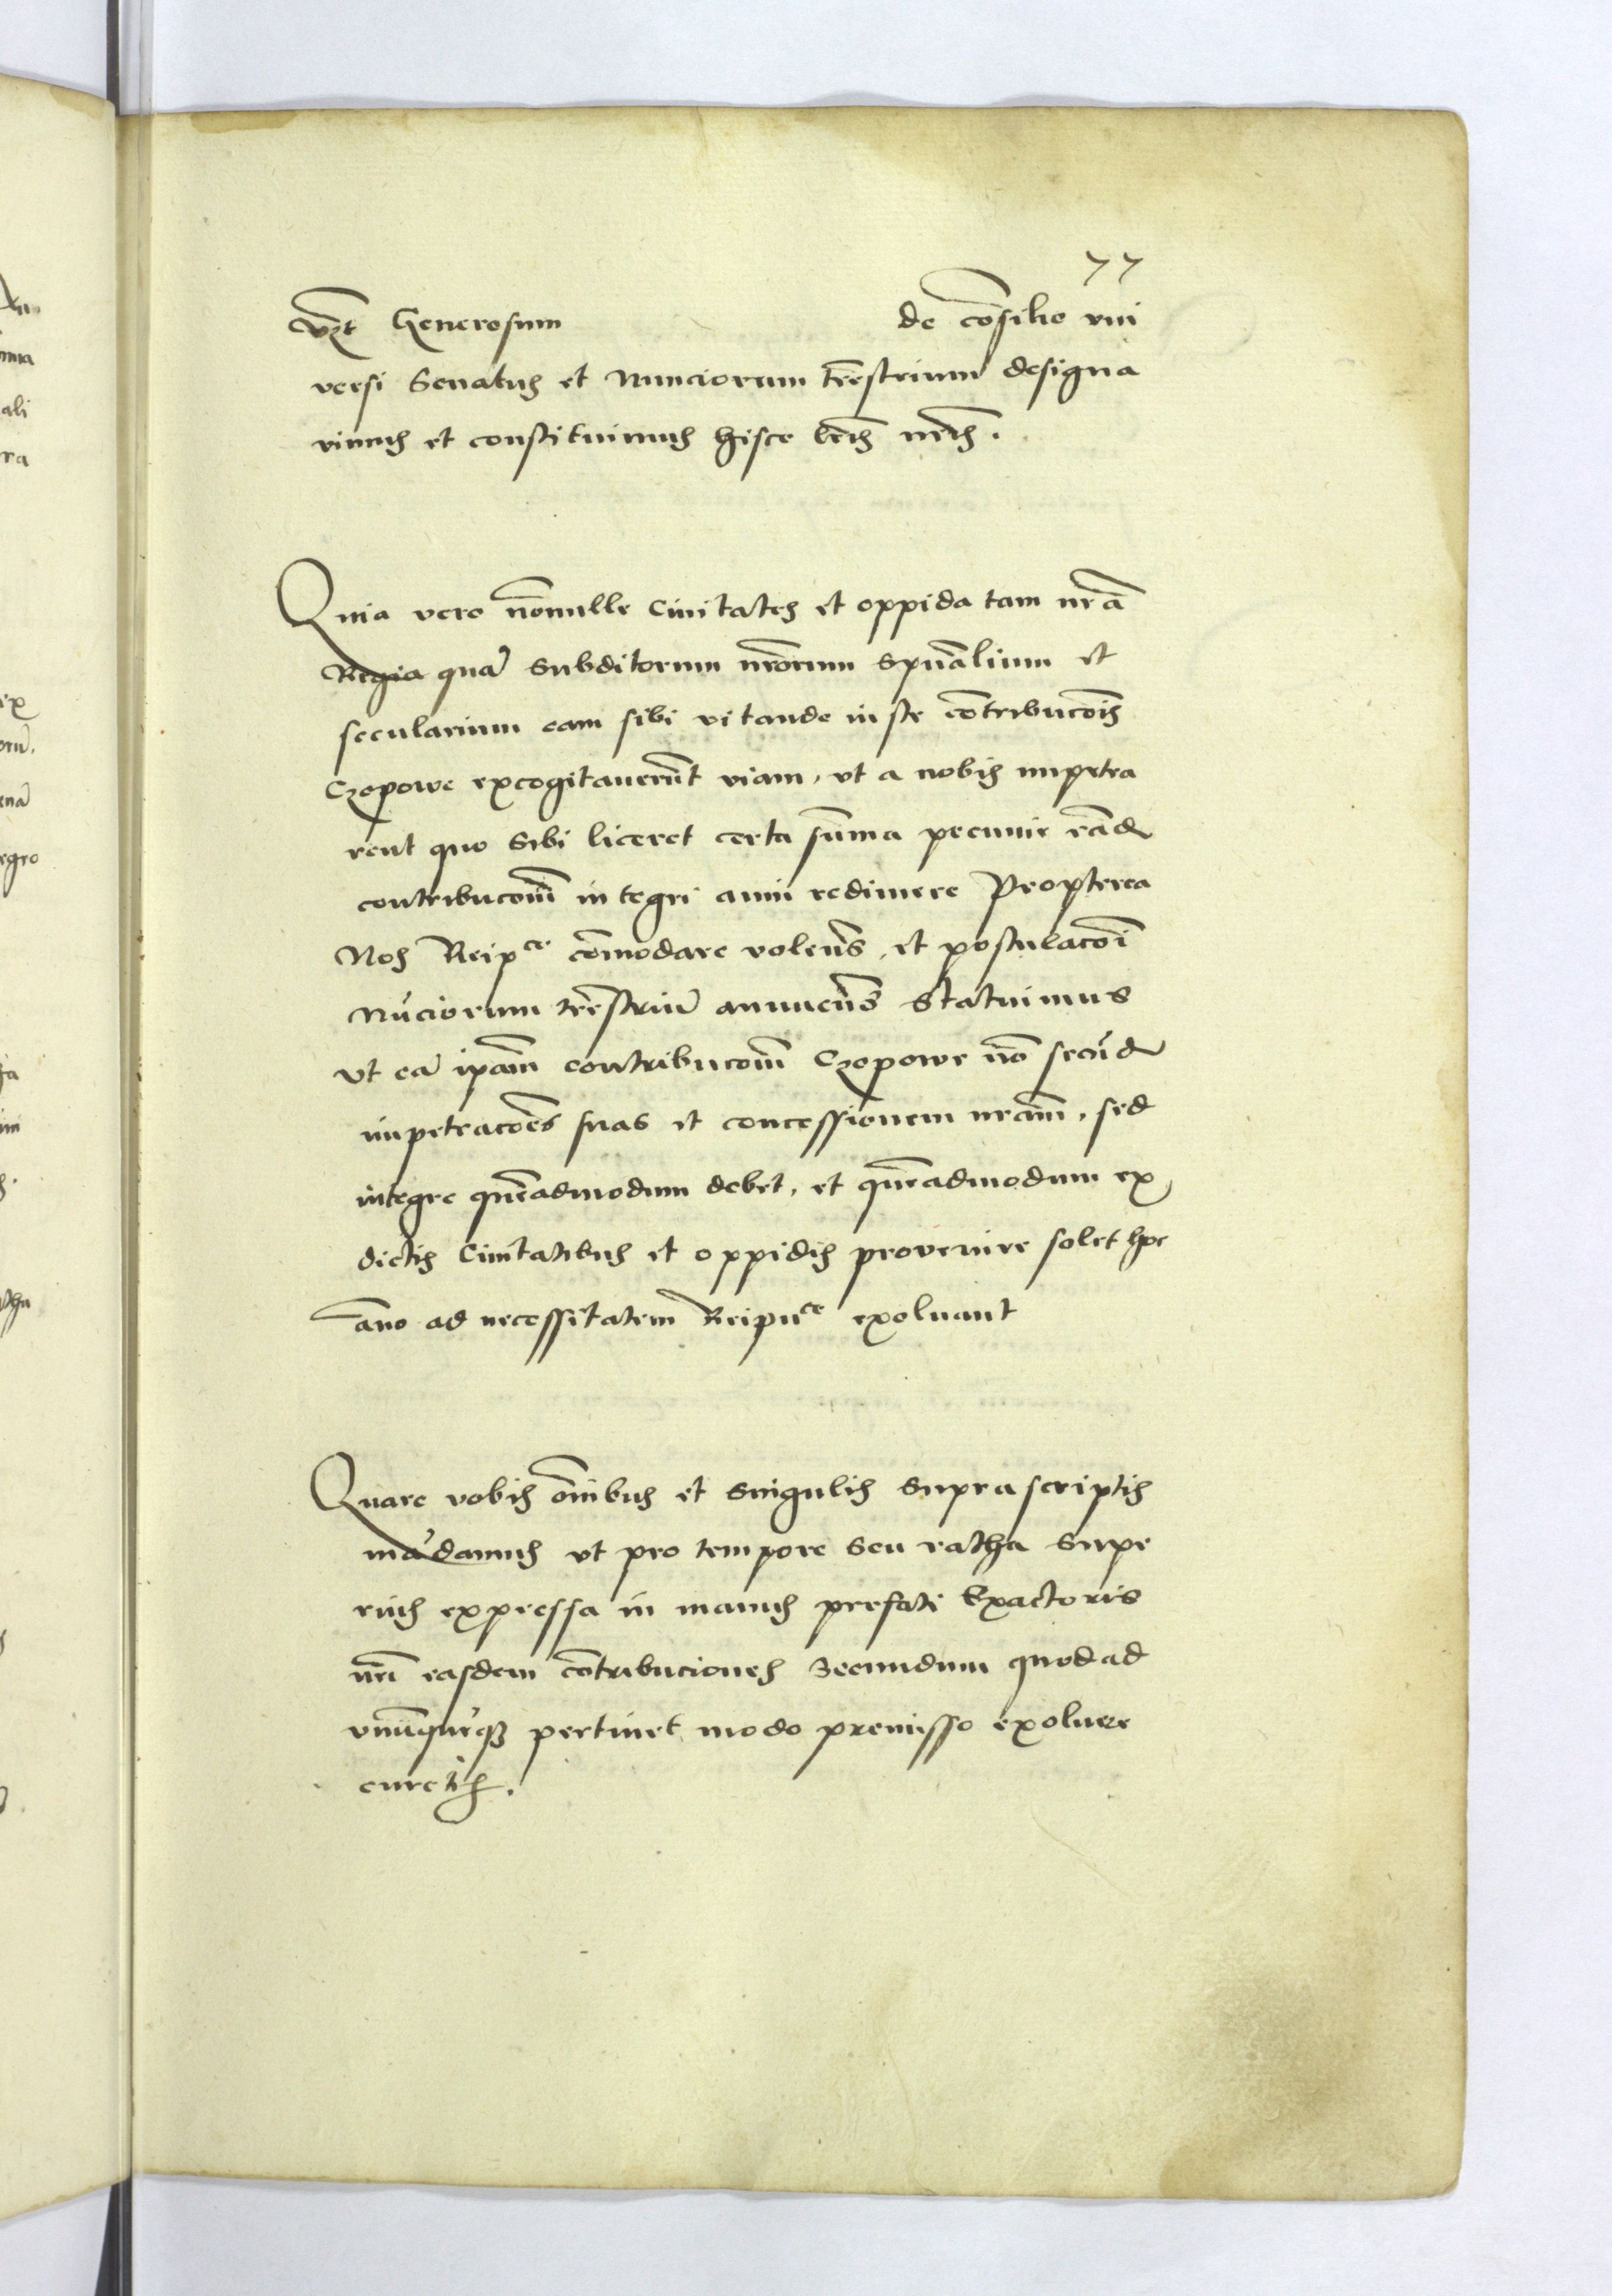 77
vzt Generosum de cõsilio vni
versi Senatus et Nunciorum tr̃estrium designa
vimus et constituimus hisce lr̃is nr̃is.
Quia vero nõnulle Ciuitates et oppida tam nr̃a
Regia quã subditorum nr̃orum spũalium et
secularium eam sibi vitande iuste cõtribucõis
Czopowe excogitauerũt viam, vt a nobis impetra
rent quo sibi liceret certa sum̃a pecunie eãd
contribucõm integri anni redimere Propterea
Nos Reipce cõmodare volens̃, et postulacõi
Nũciorum tr̃estriũ annuens̃ Statuimus
vt eã ip̃am contribucõm Czopowe nõ secũd
impetracões suas et concessionem nr̃am, sed
integre quẽadmodum debet, et quẽadmodum ex
dictis Ciuitatibus et oppidis provenire solet hoc
ãno ad necessitatem Reipuce exoluant
Quare vobis õmibus et singulis supra scriptis
mãdamus vt pro tempore seu ratha supe
rius expressa in manus prefati Exactoris
nr̃i easdem cõtribuciones secundum quod ad
vnũquẽq pertinet modo premisso exoluere
curetis.